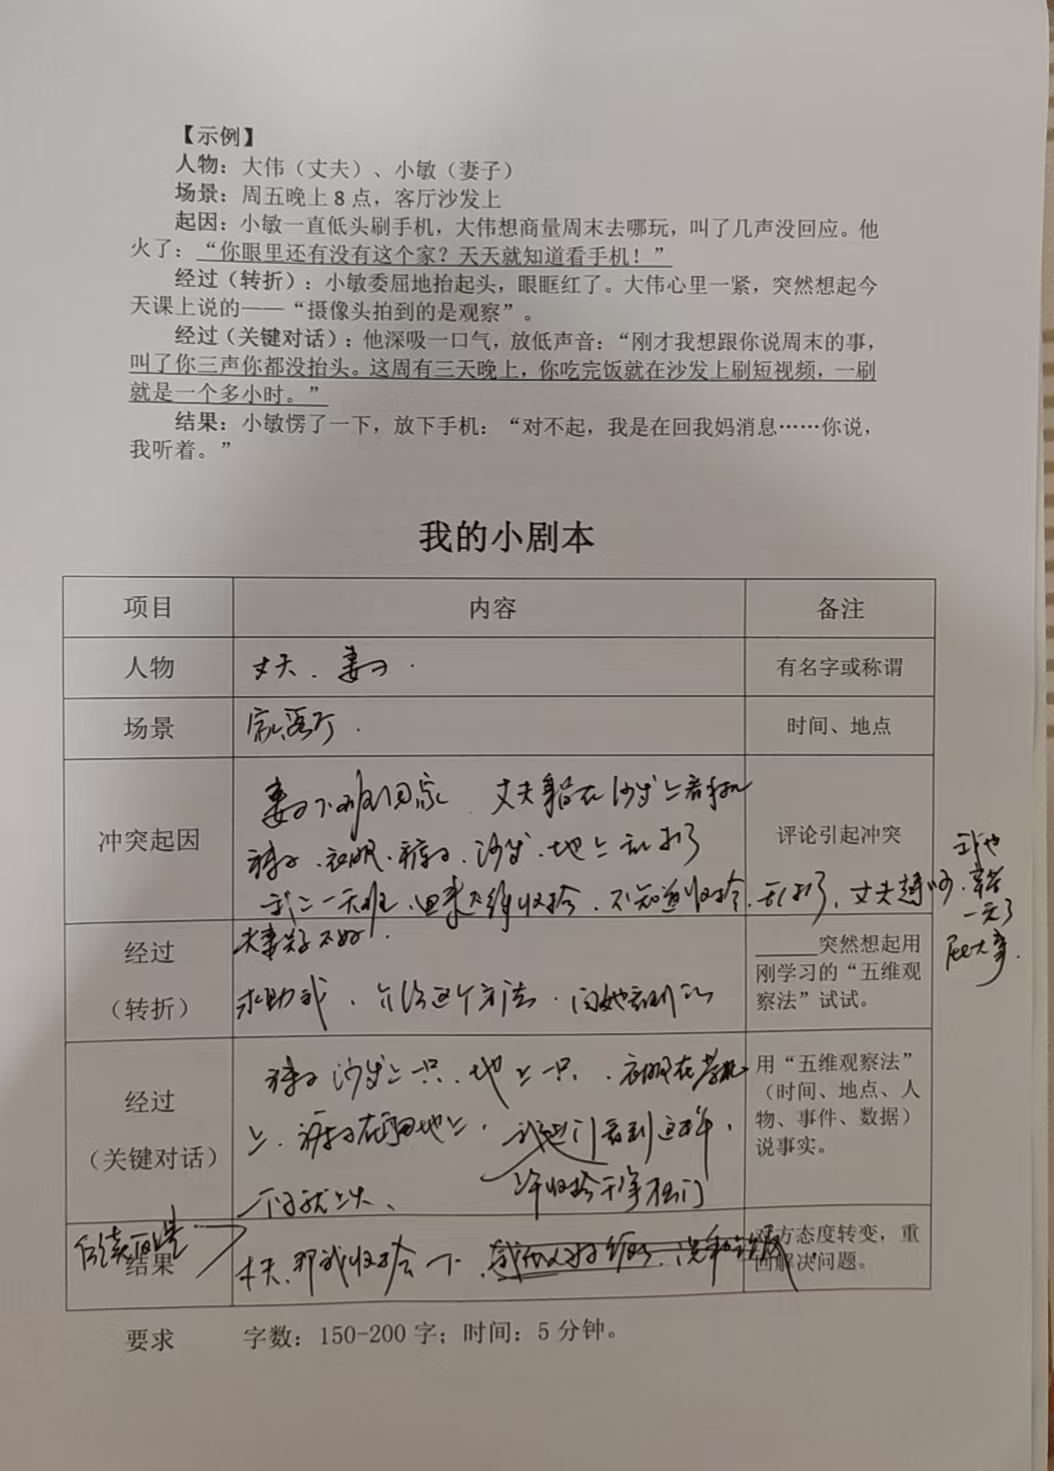 【示例】
人物：大伟（丈夫）、小敏（妻子）
场景：周五晚上 8 点，客厅沙发上
起因：小敏一直低头刷手机，大伟想商量周末去哪玩，叫了几声没回应。他
火了：“你眼里还有没有这个家？天天就知道看手机！”
经过（转折）：小敏委屈地抬起头，眼眶红了。大伟心里一紧，突然想起今
天课上说的——“摄像头拍到的是观察”。
经过（关键对话）：他深吸一口气，放低声音：“刚才我想跟你说周末的事，
叫了你三声你都没抬头。这周有三天晚上，你吃完饭就在沙发上刷短视频，一刷
就是一个多小时。”
结果：小敏愣了一下，放下手机：“对不起，我是在回我妈消息……你说，
我听着。”
我的小剧本
项目 内容 备注
人物 丈夫、妻子. 有名字或称谓
场景 家、客厅. 时间、地点
冲突起因 评论引起冲突
妻子下班回家 丈夫躺在沙发上看手机
袜子、衣服、裤子、沙发、地上乱扔了
我上一天班、回来还得收拾、不知道收拾、乱扔了，丈夫
我也
辛苦
一天了
屁大事.
夫妻关系不好.
经过
（转折）
求助我、介绍这个方法、问她看到的
突然想起用
刚学习的“五维观
察法”试试。
经过
（关键对话）
袜子沙发上一只、地上一只、衣服在
上、裤子在地上、我进门看到这样，
下子就上火、
用“五维观察法”
（时间、地点、人
物、事件、数据）
说事实。
结果
丈夫、那我收拾一下、
对方态度转变，重
回解决问题。
要求 字数：150-200 字；时间：5 分钟。